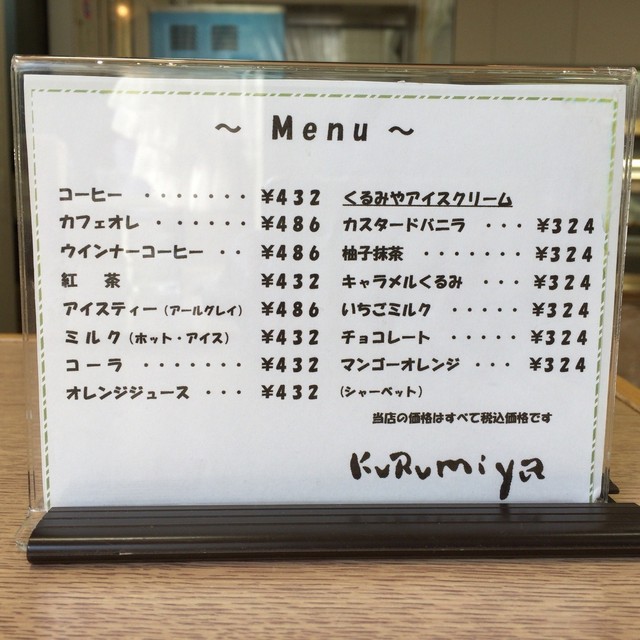 ～ Menu ～
コーヒー ・・・・・・・ ¥432
カフェオレ ・・・・・・ ¥486
ウインナーコーヒー ・・ ¥486
紅 茶 ¥432
アイスティー（アールグレイ） ¥486
ミルク（ホット・アイス） ¥432
コーラ ・・・・・・・ ¥432
オレンジジュース ・・・ ¥432
くるみやアイスクリーム
カスタードバニラ ・・・ ¥324
柚子抹茶 ・・・・・・・ ¥324
キャラメルくるみ ・・・ ¥324
いちごミルク ・・・・・ ¥324
チョコレート ・・・・・ ¥324
マンゴーオレンジ ・・・ ¥324
（シャーベット）
当店の価格はすべて税込価格です
KuRumiya